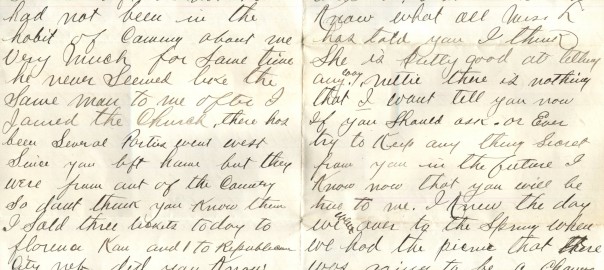 had not been in the
habit of Caming about me
Very Much for Same time
he never Seemed like the
Same man to me after I
Joined the Church, there has
been Several Parties went west
Since you left home but they
were from out of the Country
So dont think you Know them
I Sold three tickets today to
florence Kan and 1 to Republican
City neb did you Know
Know what all Miss K
has told you I think
She is Pretty good at telling
any. Easy Nettie there is nothing
that I want tell you now
If you Should ask. or Ever
try to Keep any thing Secret
from you in the future I
Know now that you will be
true to me. I Knew the day
we were over to the Spring when
we had the picnic that there
was going to be a